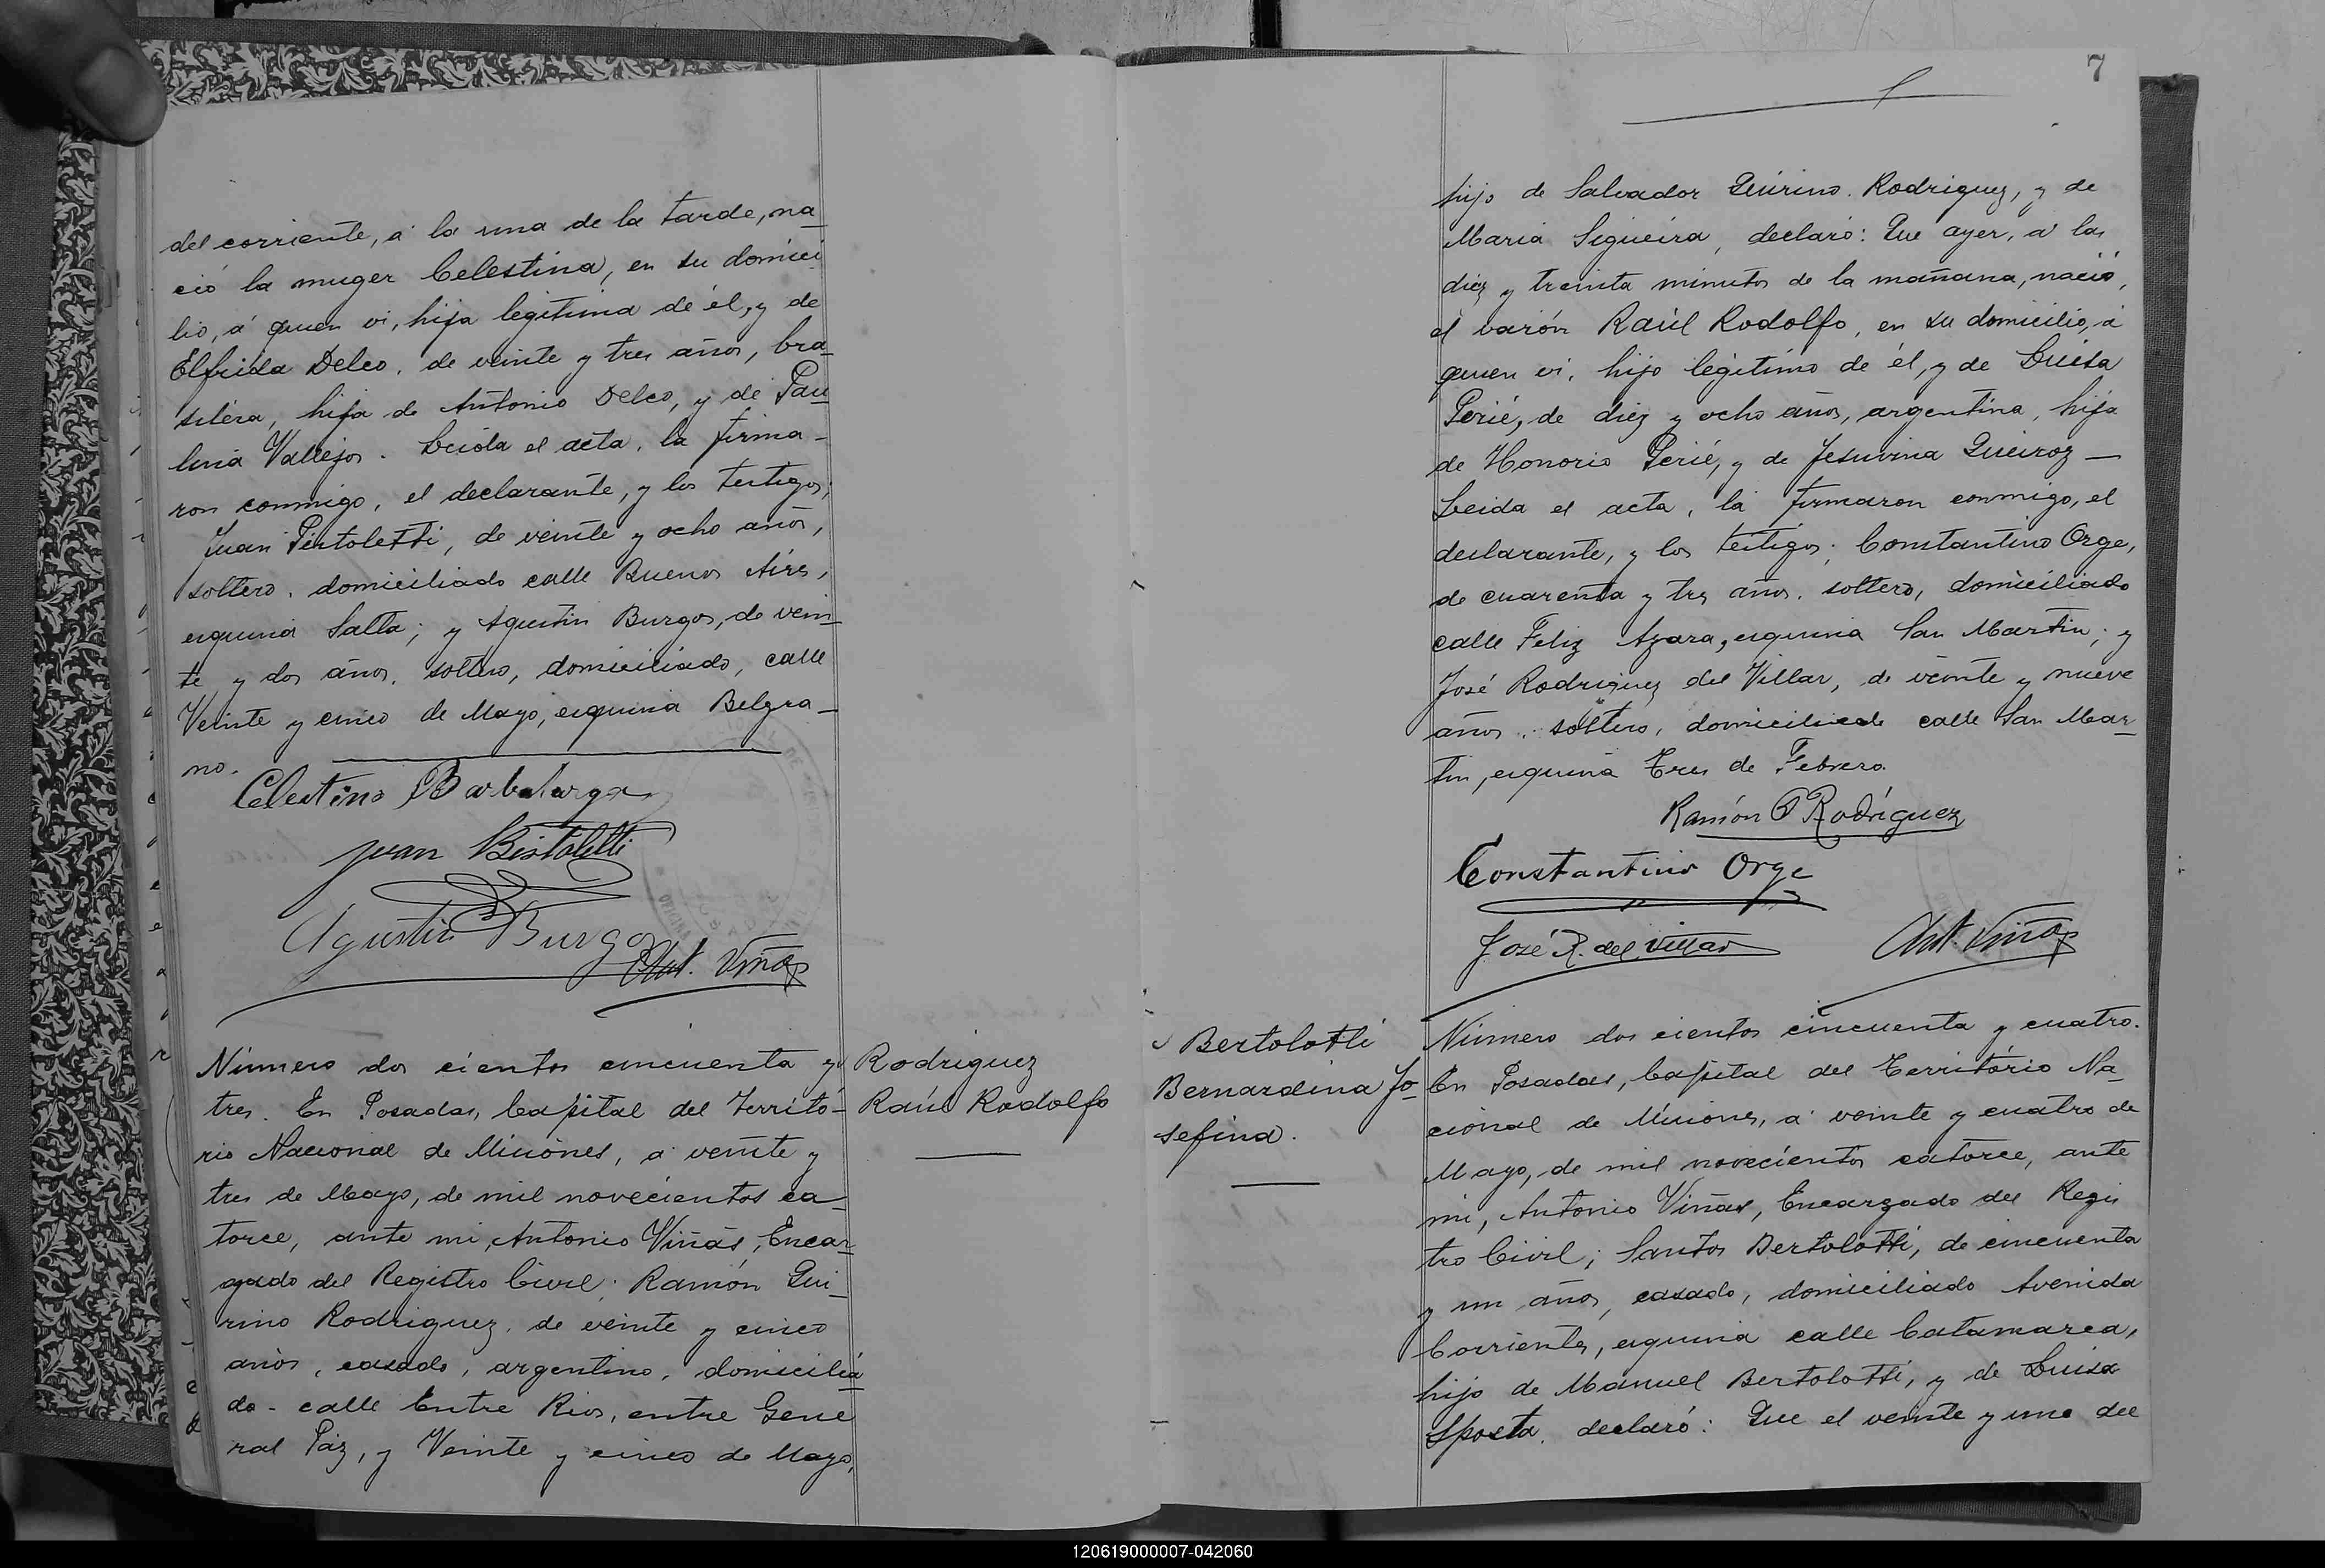 del corriente, á la una de la tarde, na_
ció la muger Celestina, en su domici_
lio, á quien vi, hija legitima de él, y de
Elfrida Delco, de veinte y tres años, bra_
silera, hija de Antonio Delco, y de Pau_
lina Vallejos. Leida el acta, la firma_
ron conmigo, el declarante, y los testigos;
Juan Pistoletti, de veinte y ocho años,
soltero, domiciliado calle Buenos Aires,
esquina Salta; y Agustin Burgos, de vein_
te y dos años, soltero, domiciliado, calle
Veinte y cinco de Mayo, esquina Belgra_
no.
Celestino Barbalarga
Juan Bistoletti
Agustin Burgos
Ant. Viñas
Número dos cientos cincuenta y
tres. En Posadas, Capital del Territó_
rio Nacional de Misiones, a veinte y
tres de Mayo, de mil novecientos ca_
torce, ante mi, Antonio Viñas, Encar_
gado del Registro Civil; Ramón Qui_
rino Rodriguez, de veinte y cinco
años, casado, argentino, domicilia_
do - calle Entre Rios, entre Gene
ral Paz, y Veinte y cinco de Mayo,
Rodriguez
Raúl Rodolfo
7
hijo de Salvador Quirino Rodriguez, y de
Maria Sigueira, declaró: Que ayer, a las
diez y treinta minutos de la mañana, nació,
el varón Raúl Rodolfo, en su domicilio, á
quien vi, hijo legitimo de él, y de Luisa
Perié, de diez y ocho años, argentina, hija
de Honorio Perié, y de Jesuvina Queiroz _
Leida el acta, la firmaron conmigo, el
declarante, y los testigos; Constantino Orge,
de cuarenta y tres años, soltero, domiciliado
calle Feliz Azara, esquina San Martin; y
José Rodriguez del Villar, de veinte y nueve
años, soltero, domiciliado calle San Mar_
tin, esquina Tres de Febrero.
Ramón Q Rodríguez
Constantino Orge
José R. del Villar
Ant. Viñas
Bertolotti
Bernardina Jo_
sefina.
Número dos cientos cincuenta y cuatro.
En Posadas, Capital del Território Na_
cional de Misiones, a veinte y cuatro de
Mayo, de mil novecientos catorce, ante
mi, Antonio Viñas, Encargado del Regis
tro Civil; Santos Bertolotti, de cincuenta
y un años, casado, domiciliado Avenida
Corrientes, esquina calle Catamarca,
hijo de Manuel Bertolotti, y de Luisa
Sposta, declaró: Que el veinte y uno del
120619000007-042060